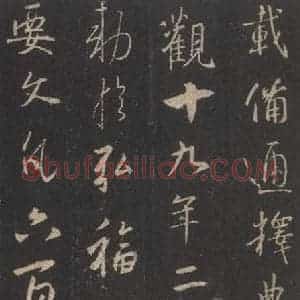 載備通釋典
觀十九年二
勅於弘福
要文凡六百
Shufaziliao.com